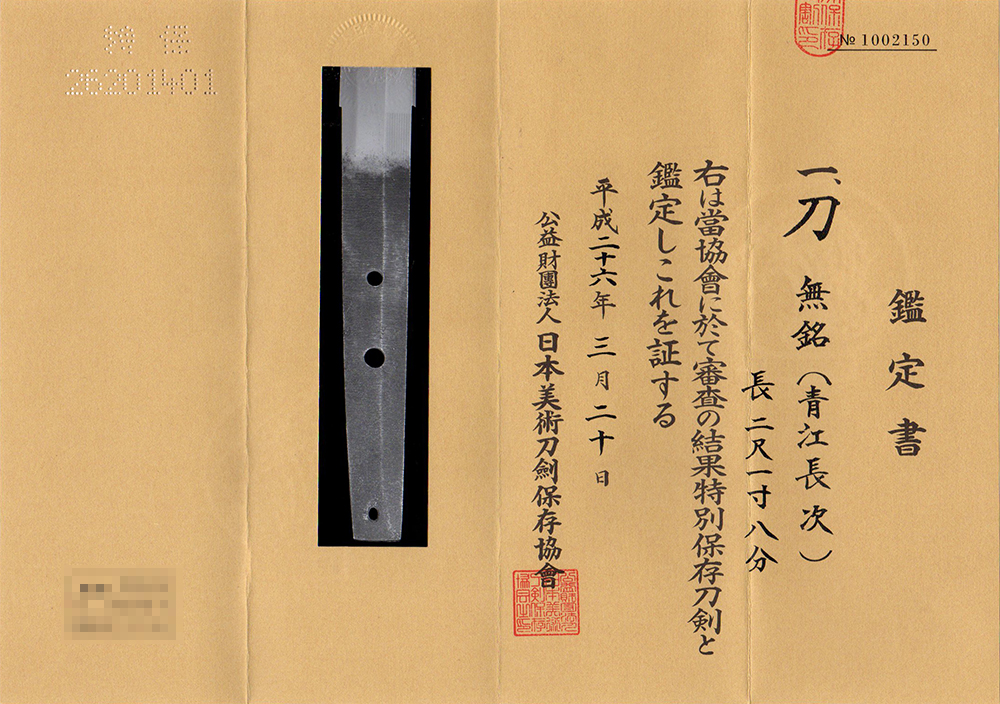 № 1002150
鑑定書
一、刀 無銘（青江長次）
長二尺一寸八分
右は當協會に於て審査の結果特別保存刀剣と
鑑定しこれを証する
平成二十六年三月二十日
公益財團法人日本美術刀劍保存協會
特保
26201401